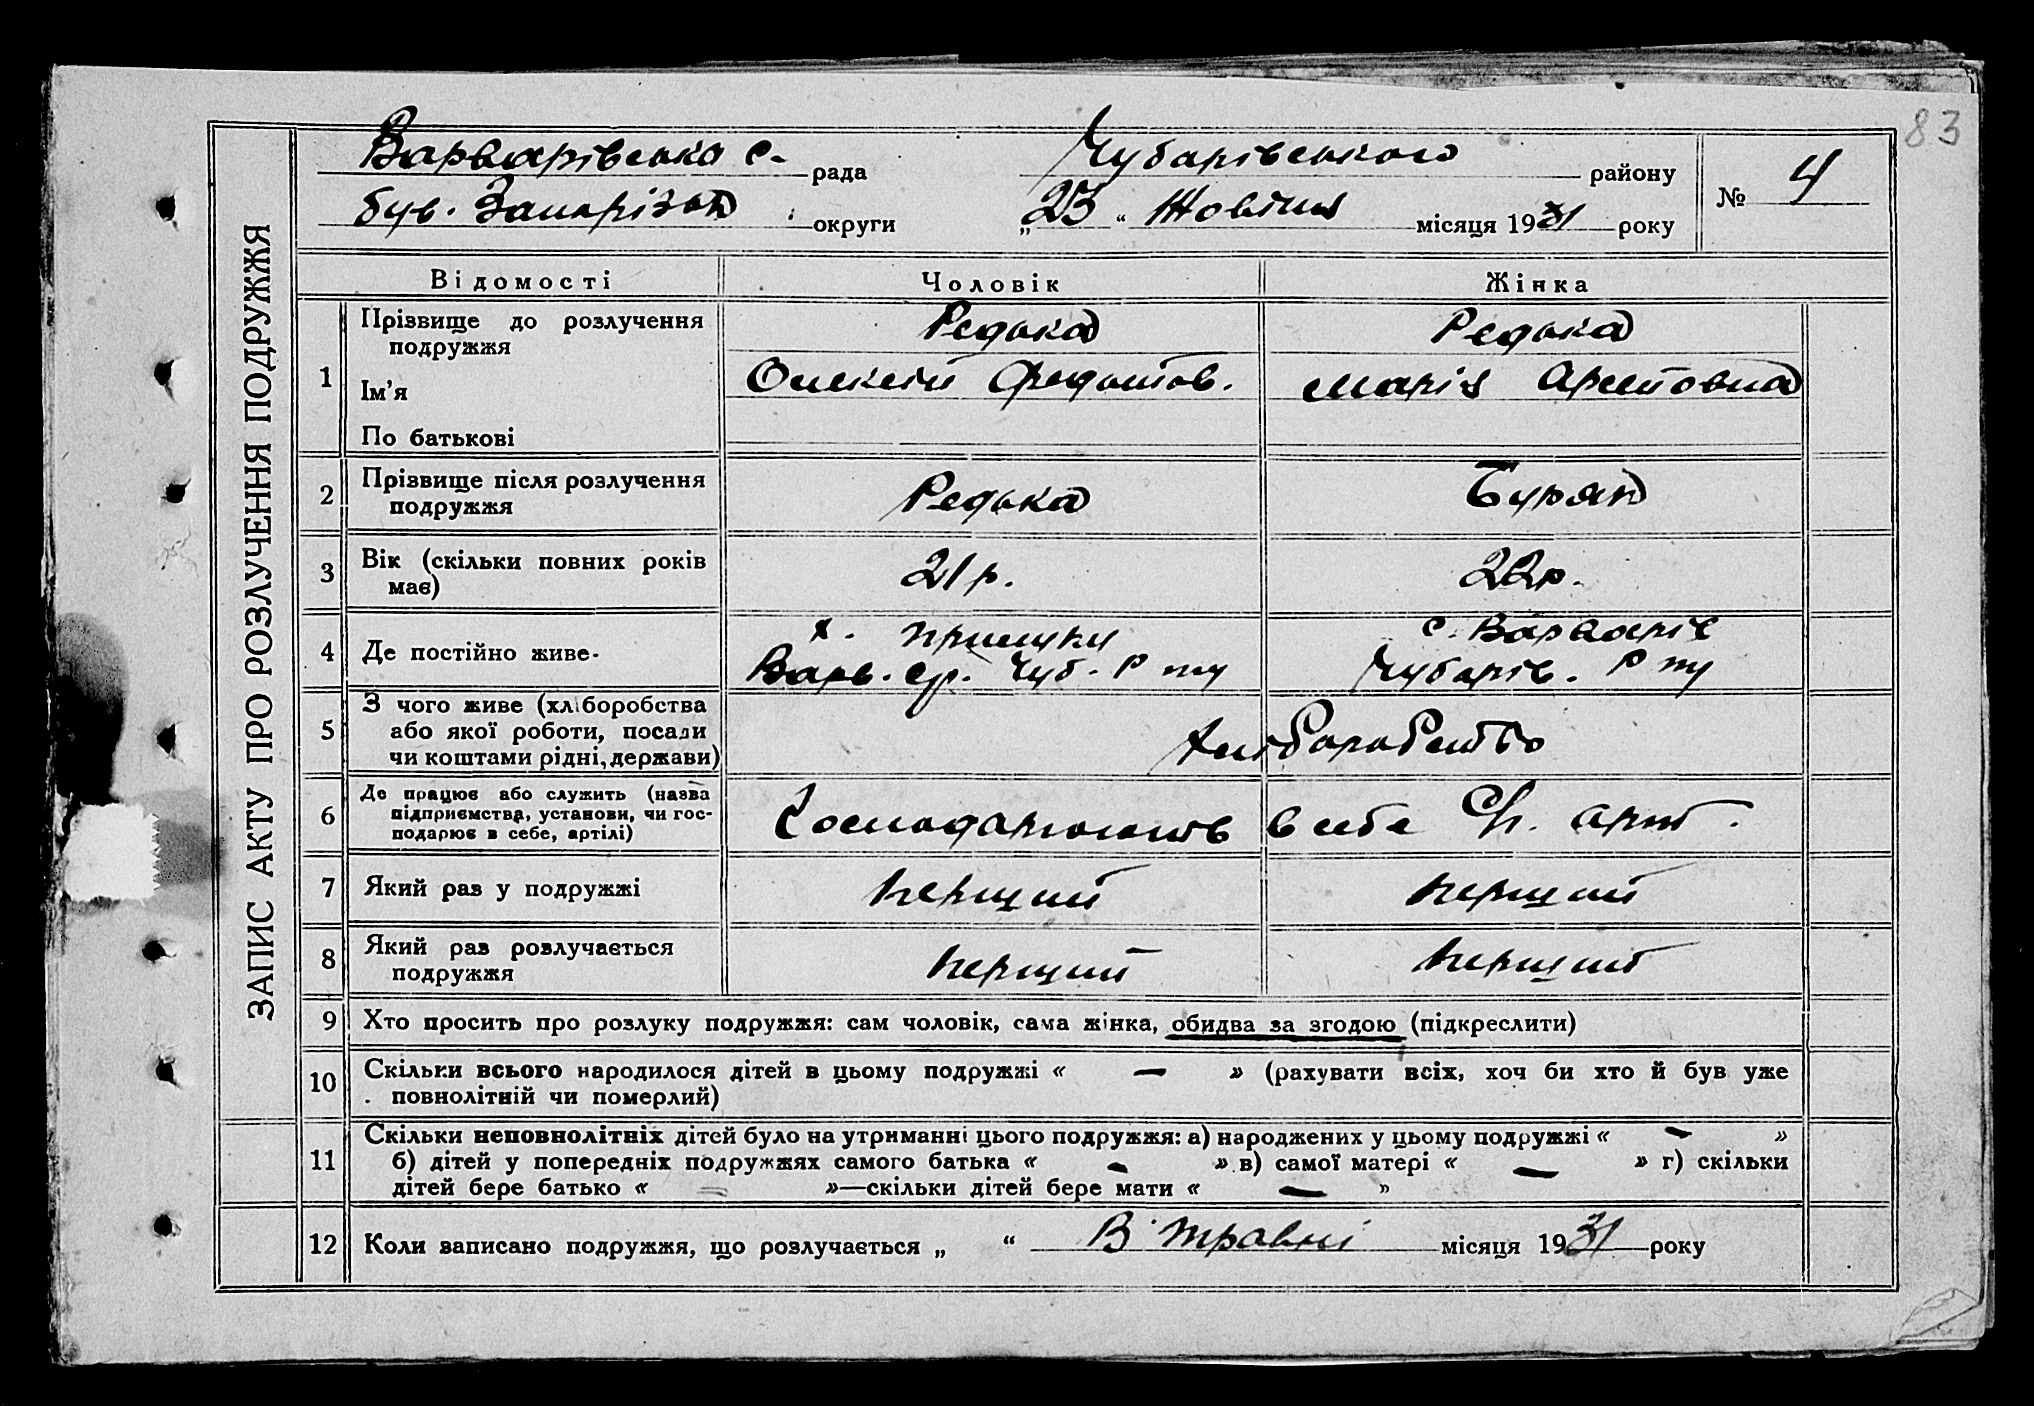 83
ЗАПИС АКТУ ПРО РОЗЛУЧЕННЯ ПОДРУЖЖЯ
Варварівська с. рада Чубарівського району № 4
був. Запорізьк округи „23“ Жовтня місяця 1931 року
Відомості Чоловік Жінка
1 Прізвище до розлучення подружжя Редька Редька
Ім'я Олексій Федотов. Марія
По батькові
2 Прізвище після розлучення подружжя Редька Буряк
3 Вік (скільки повних років має) 21 р. 22 р.
4 Де постійно живе- х. с. Варварів
Варв. с/р. Чуб. Р ну Чубарів. Р ну
5 З чого живе (хліборобства або якої роботи, посади чи коштами рідні, держави) Хліборобство
6 Де працює або служить (назва підприємства, установи, чи господарює в себе, артілі) Господарюють в себе арт.
7 Який раз у подружжі перший перший
8 Який раз розлучається подружжя перший перший
9 Хто просить про розлуку подружжя: сам чоловік, сама жінка, обидва за згодою (підкреслити)
10 Скільки всього народилося дітей в цьому подружжі « — » (рахувати всіх, хоч би хто й був уже
повнолітній чи померлий)
11 Скільки неповнолітніх дітей було на утриманні цього подружжя: а) народжених у цьому подружжі « — »
б) дітей у попередніх подружжях самого батька « — » в) самої матері « — » г) скільки
дітей бере батько « — »—скільки дітей бере мати « — »
12 Коли записано подружжя, що розлучається „ “ В травні місяця 1931 року